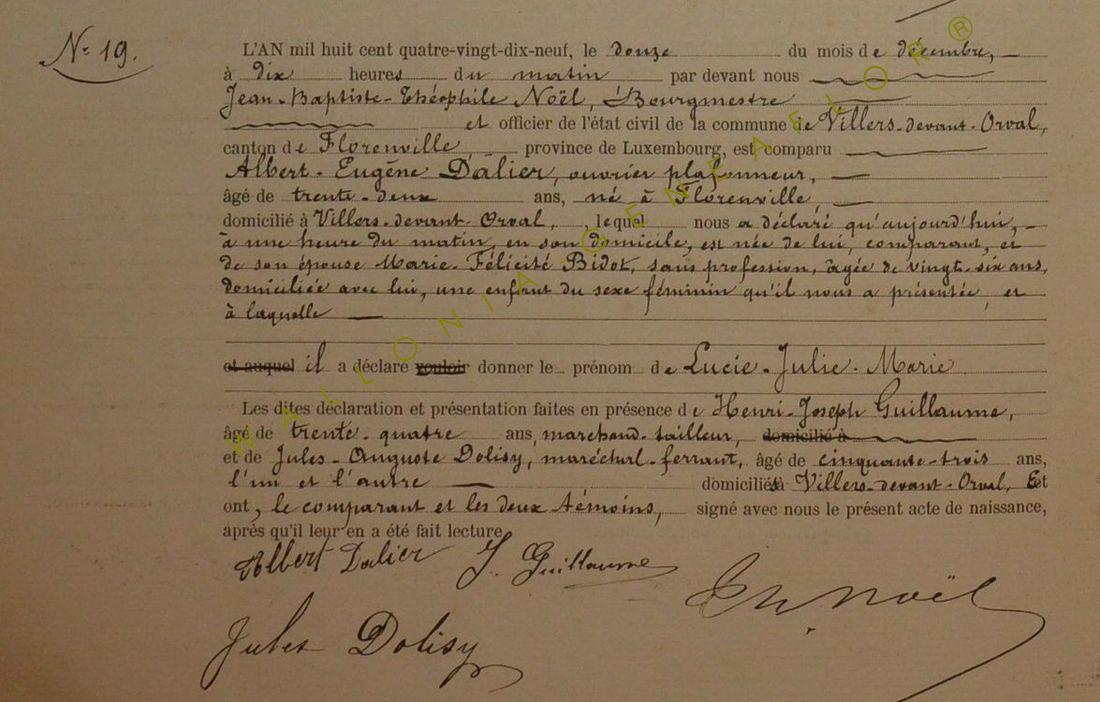 Nº 19.
L'AN mil huit cent quatre-vingt-dix-neuf, le douze du mois de décembre,
à dix heures du matin par devant nous
Jean-Baptiste-Théophile Noël, Bourgmestre
et officier de l'état civil de la commune de Villers-devant-Orval,
canton de Florenville, province de Luxembourg, est comparu
Albert-Eugène Dalier, ouvrier plafonneur,
âgé de trente-deux ans, né à Florenville,
domicilié à Villers-devant-Orval, lequel nous a déclaré qu'aujourd'hui,
à une heure du matin, en son domicile, est née de lui, comparant, et
de son épouse Marie-Félicité Bidot, sans profession, âgée de vingt-six ans,
domiciliée avec lui, une enfant du sexe féminin qu'il nous a présentée, et
à laquelle
et auquel il a déclaré vouloir donner le prénom de Lucie-Julie-Marie
Les dites déclaration et présentation faites en présence de Henri-Joseph Guillaume,
âgé de trente-quatre ans, marchand-tailleur, domicilié à
et de Jules-Auguste Dolisy, maréchal-ferrant, âgé de cinquante-trois ans,
l'un et l'autre domiciliés à Villers-devant-Orval, Et
ont, le comparant et les deux témoins, signé avec nous le présent acte de naissance,
après qu'il leur en a été fait lecture
Albert Dalier J. Guillaume
Th Noël
Jules Dolisy
WALLONIA GENEAFLOR®